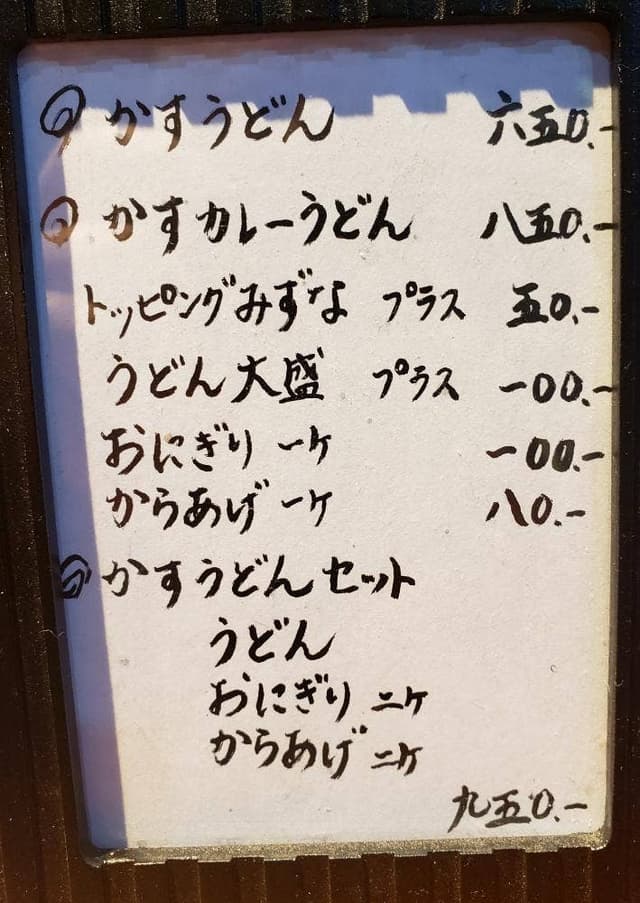 ◎かすうどん 六五0.-
◎かすカレーうどん 八五0.-
トッピングみずな プラス 五0.-
うどん大盛 プラス 一00.-
おにぎり 一ケ 一00.-
からあげ 一ケ 八0.-
◎かすうどんセット
うどん
おにぎり 二ケ
からあげ 二ケ
九五0.-